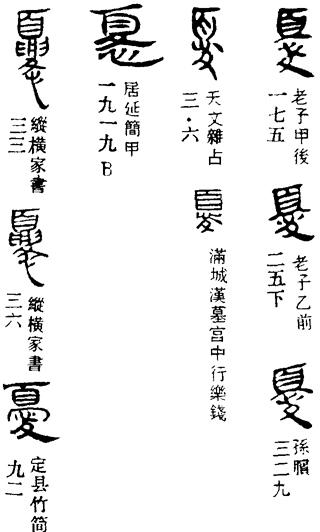 憂
老子甲後
一七五
憂
老子乙前
二五下
憂
孫臏
三二九
憂
天文雜占
三·六
憂
滿城漢墓宮中行樂錢
憂
居延簡甲
一九一九B
憂
縱橫家書
三三
憂
縱橫家書
三六
憂
定县竹简
九二